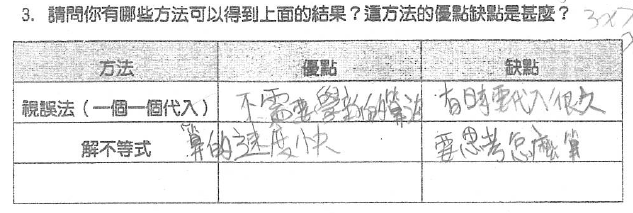 3. 請問你有哪些方法可以得到上面的結果?這方法的優點缺點是甚麼?
3x7
方法 優點 缺點
視誤法(一個一個代入) 不需要學新的算法 有時要代入很久
解不等式 算的速度快 要思考怎麼算